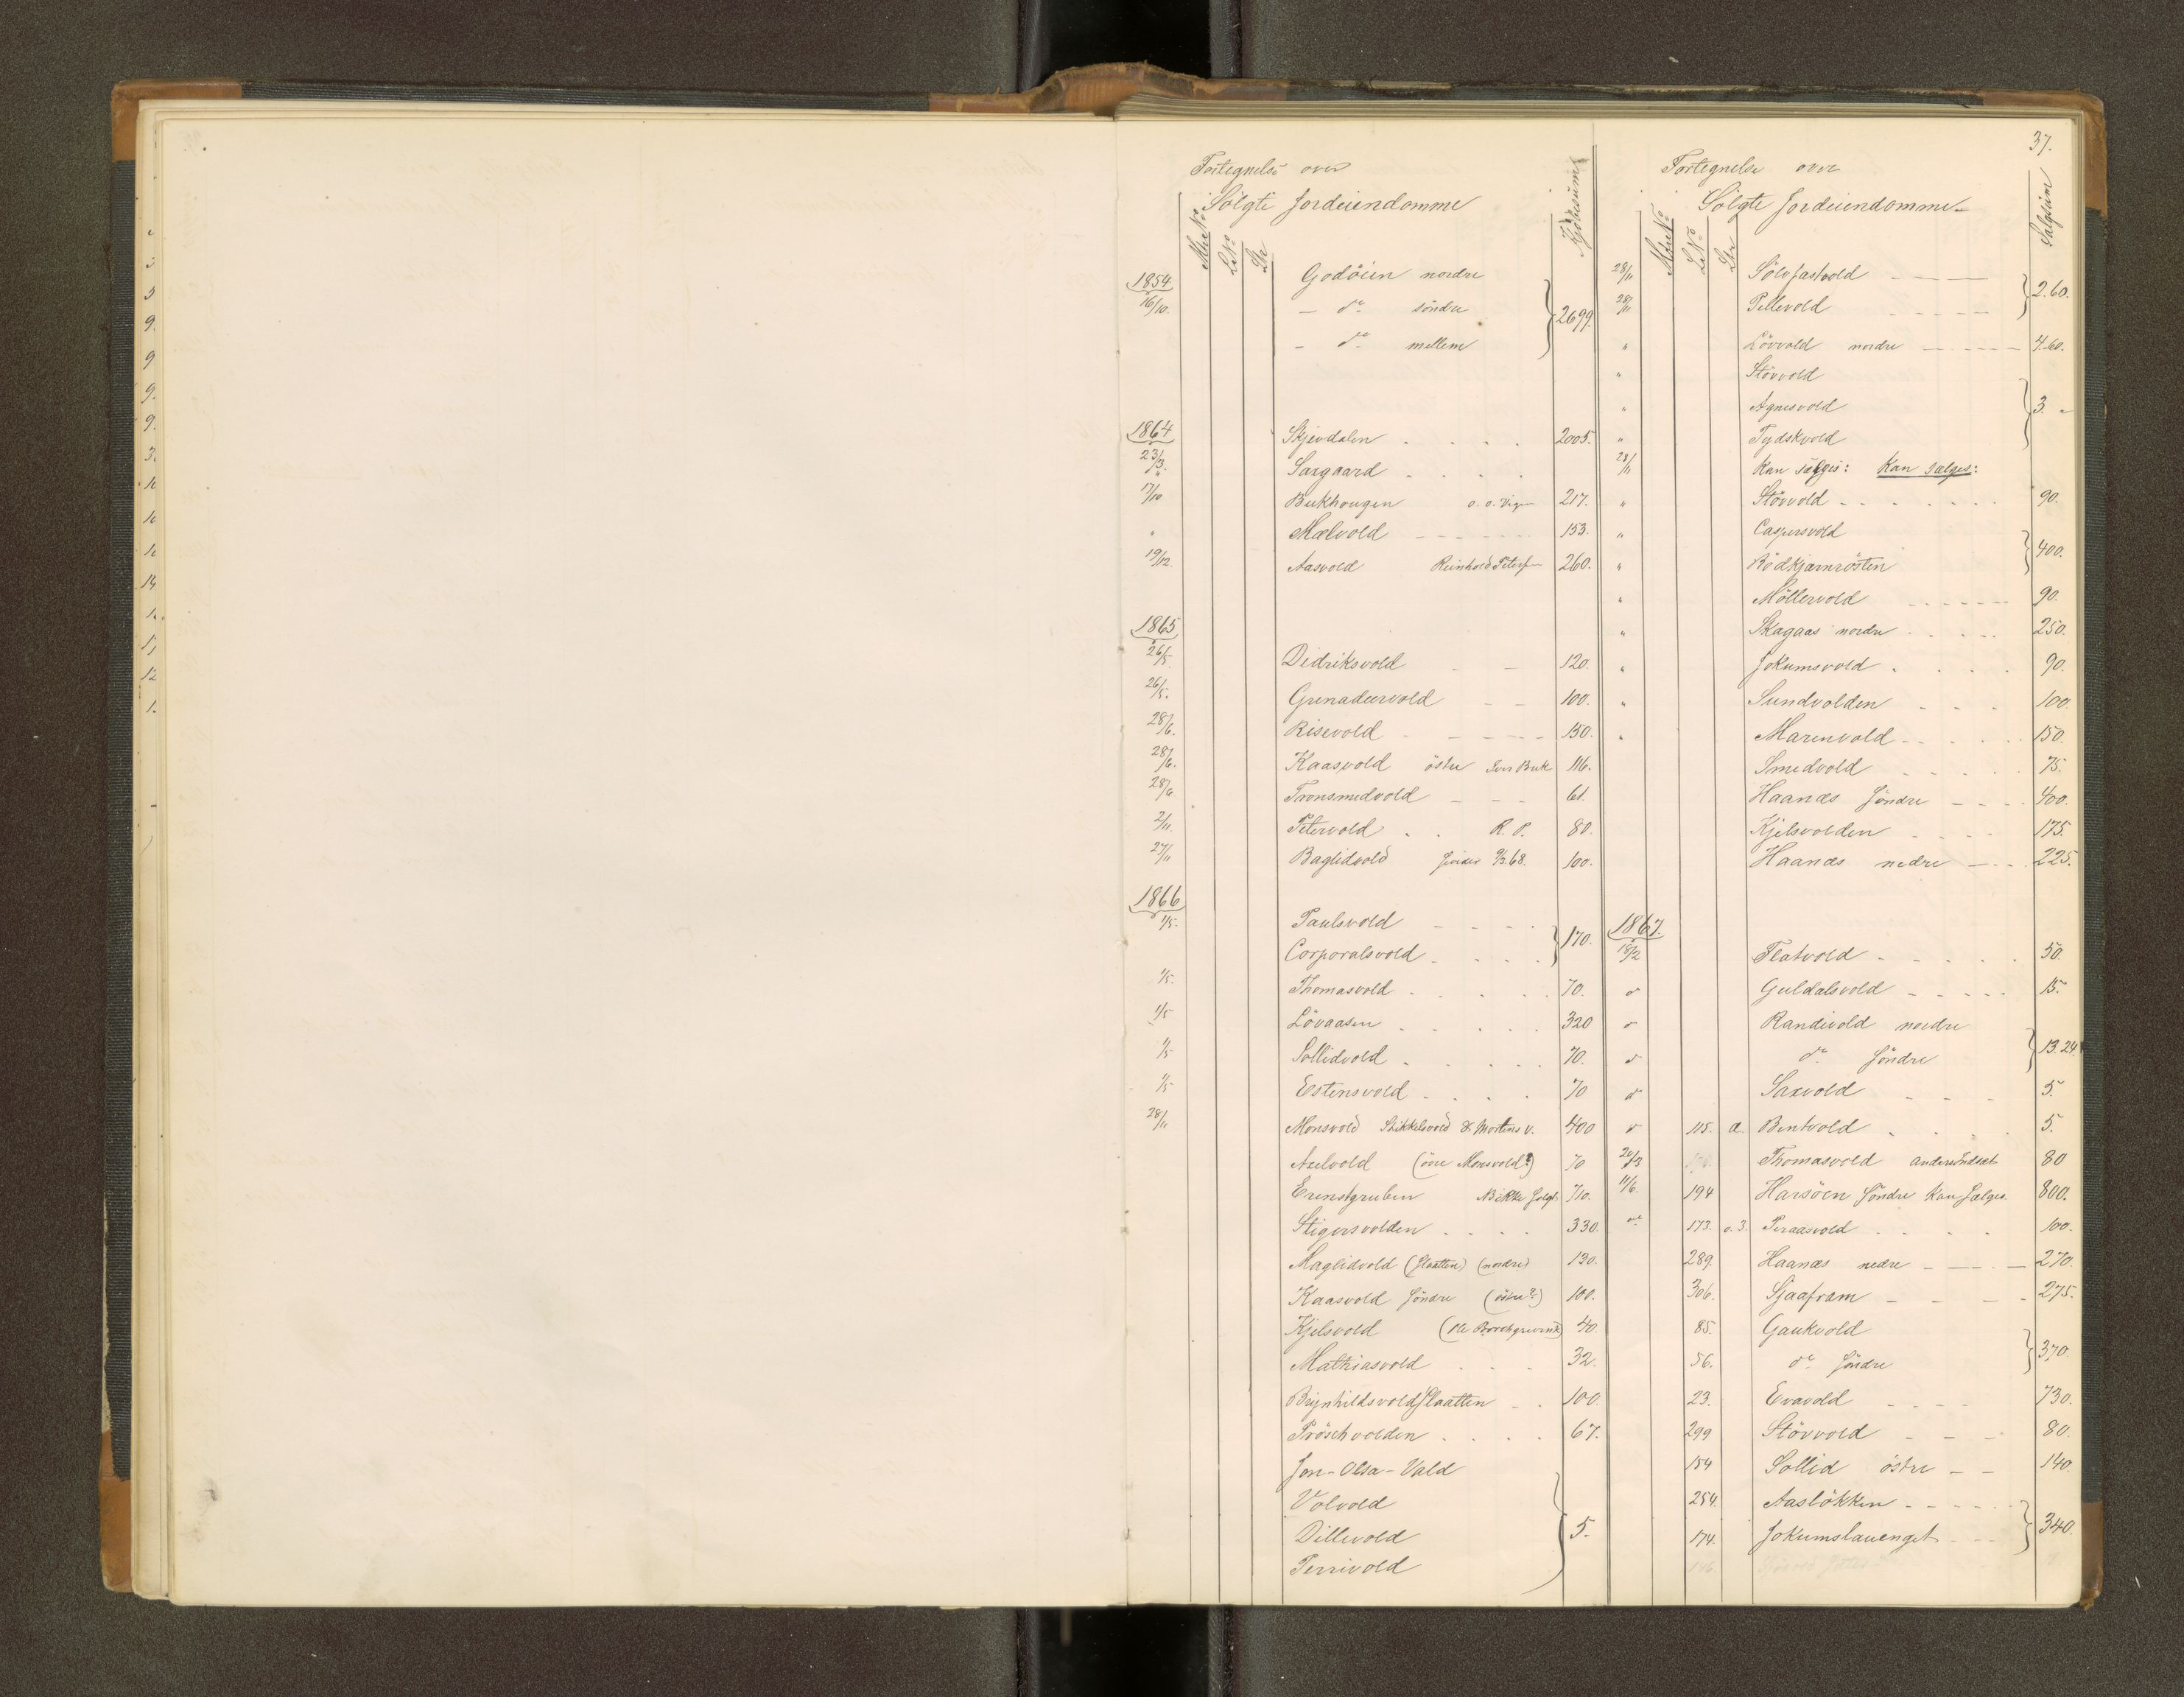 37.
Fortegnelse over
Solgte Jordeiendomme
MtrNo
LNo
Ltr
Kjöbesum
1854
16/10. Godöien nordre
— do söndre } 2699.
— do mellem
1864 Skjevdalen . . . . 2005.
23/3. Saxgaard . . . .
17/10 Bukhougen 217.
" Mælvold — — — 153.
19/12 Aasvold Reinhold Petersen 260.
1865
26/5. Didriksvold — — 120.
26/5. Grenadeervold — — 100.
28/6. Risevold — — — 150.
28/6. Kaasvold östre Iver Buk 116.
28/6 Tronsmedvold — — — 61.
2/11. Petervold . . R. P. 80.
27/11 Baglidvold 9/3.68. 100.
1866
1/5. Paulsvold — — — —
Corporalsvold . . . . } 170.
1/5. Thomasvold . . . . 70.
1/5 Lövaasen . . . . 320
1/5 Sollidvold . . . . 70.
1/5 Estensvold . . . . 70
28/11 Monsvold Stikkelsvold & Mortens v. 400
Axelvold (övre Monsvold?) 70
Ernstgruben NB ikke solgt. 70.
Stigersvolden . . . . 330.
Maglidvold (Slaatten) (nordre) 130.
Kaasvold Söndre (östre?) 100.
Kjelsvold (Ole Borchgrevink) 40.
Mathiasvold . . . 32.
Brynhildsvold Slaatten — . 100.
Pröschvolden . . . . 67.
Jon-Olsa-Vald
Volvold
Dillevold } 5.
Perrivold
Fortegnelse over
Solgte Jordeiendomme
MtrNo
LNo
Ltr
Salgsum
28/11 Sölvfastvold — — —
28/11 Pellevold — — — } 2.60.
" Lövvold nordre — — — 4.60.
" Stövvold
" Agnesvold } 3. "
" Tydskvold
28/11 Kan sælges: Kan sælges:
" Stövvold . . . . 90.
" Caspersvold
" Rödkjærnrösten } 400.
" Möllervold — — — 90.
" Skagaas nordre . . . . 250.
" Jokumsvold . . . . 90.
" Sundvolden . . . 100
" Marenvold . . . . 150.
Smedvold . . . . 75.
Haanæs Söndre — — — 400.
Kjelsvolden . . . . 175.
Haanæs nedre — . . 225.
1867.
18/2 Flatvold . . . . 50.
do Guldalsvold — — — 15.
do Randivold nordre
do do Söndre } 13.24.
do Saxvold — — — 5.
do 115. a. Bentvold . . . . 5.
20/3 Thomasvold 80
11/6. 194 Harsöen Söndre Kan Sælges. 800.
do 173. o. 3. Peraasvold . . . . 100.
289. Haanæs nedre — — — 270.
306. Sjaafram — — — 275.
85. Gaukvold
56. do Söndre } 370.
23. Evavold — — — 730.
299 Stövvold — — — 80.
154 Sollid östre — — 140.
254. Aaslökken — — —
174. Jokumslauenget — — — } 340.
146